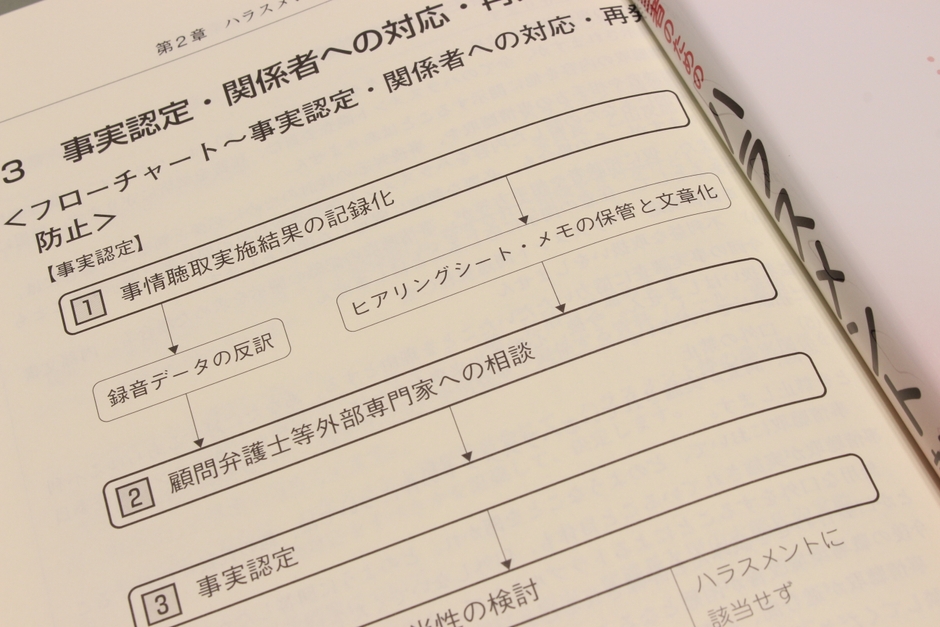 第2章 ハラスメン
3 事実認定・関係者への対応・再
<フローチャート～事実認定・関係者への対応・再発
防止>
【事実認定】
1 事情聴取実施結果の記録化
録音データの反訳
ヒアリングシート・メモの保管と文章化
2 顧問弁護士等外部専門家への相談
3 事実認定
当性の検討
ハラスメントに
該当せず
者のための
ハラスメント